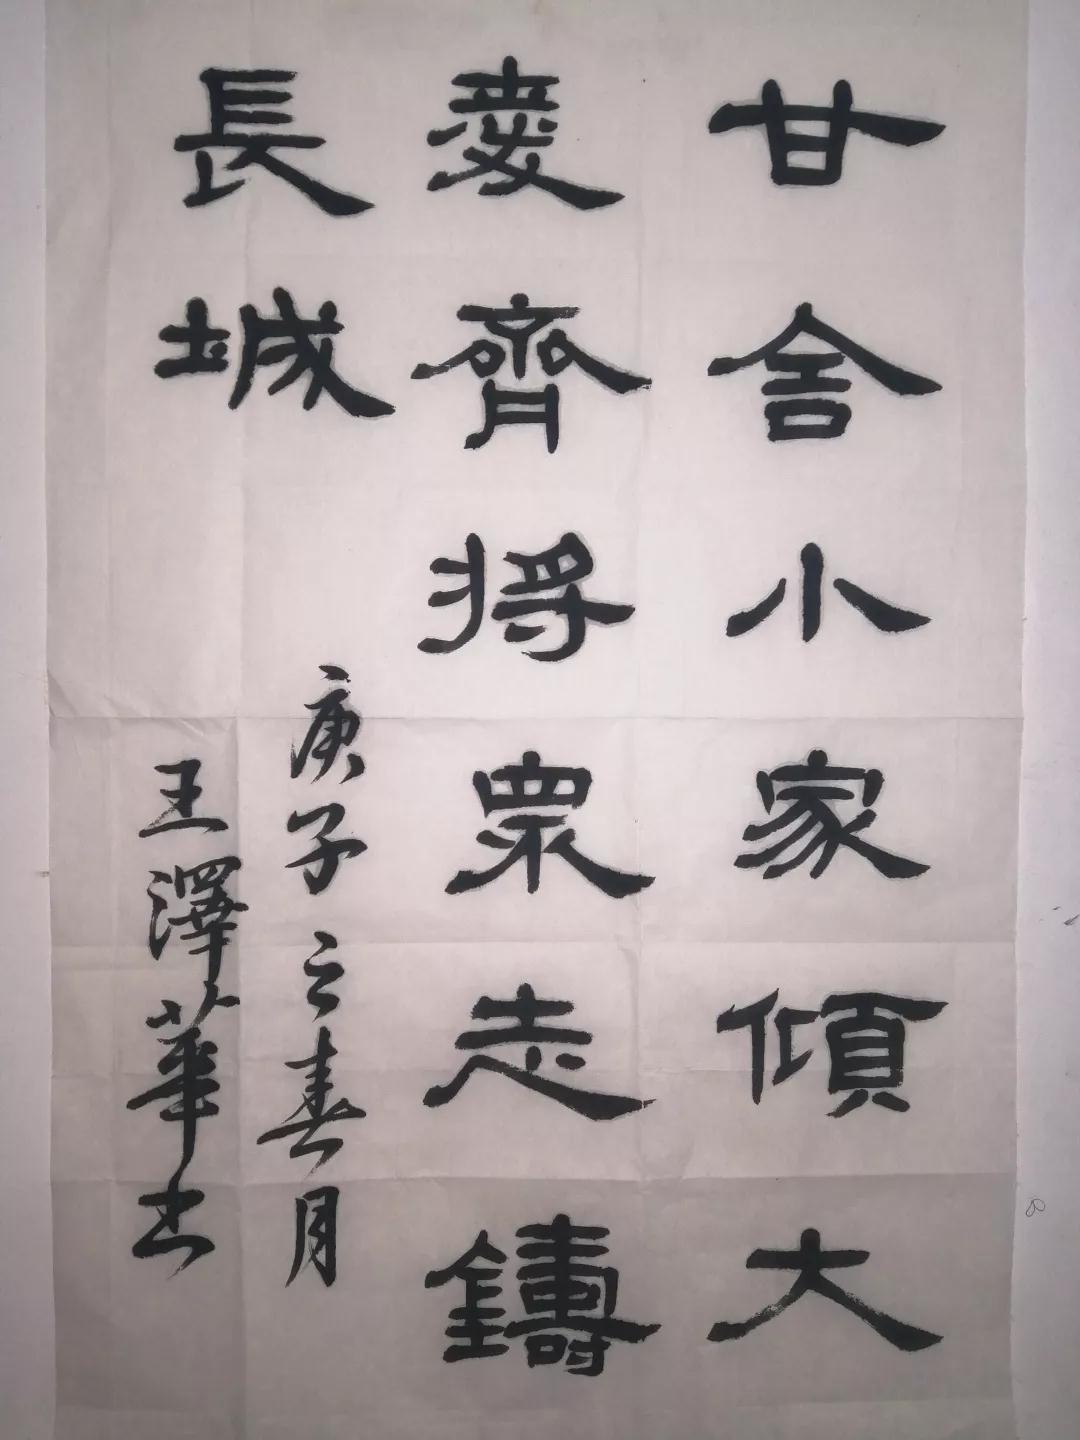 甘舍小家傾大
愛齊將眾志鑄
長城
庚子立春月
王澤華書